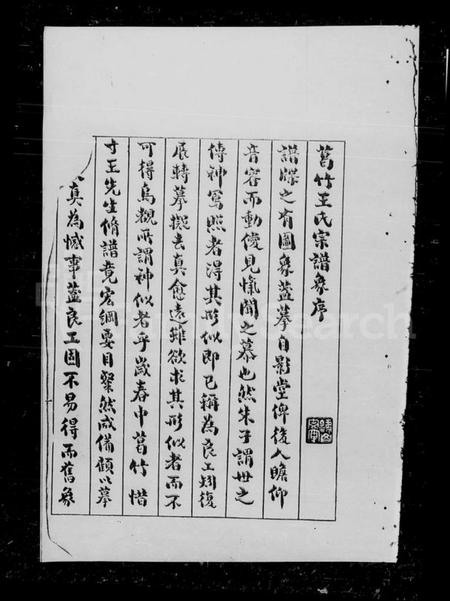 菖竹王氏宗譜象序
譜牒之有圖象蓋摹自影堂俾後人瞻仰
音容而動僾見愾聞之慕也然朱子謂世之
傳神寫照者得其形似即已稱為良工矧復
展轉摹擬去真愈遠雖欲求其形似者而不
可得烏覩所謂神似者乎歲春中菖竹惜
寸王先生脩譜竟宏綱要目粲然咸備顧以摹
真為憾事蓋良工固不易得而舊象